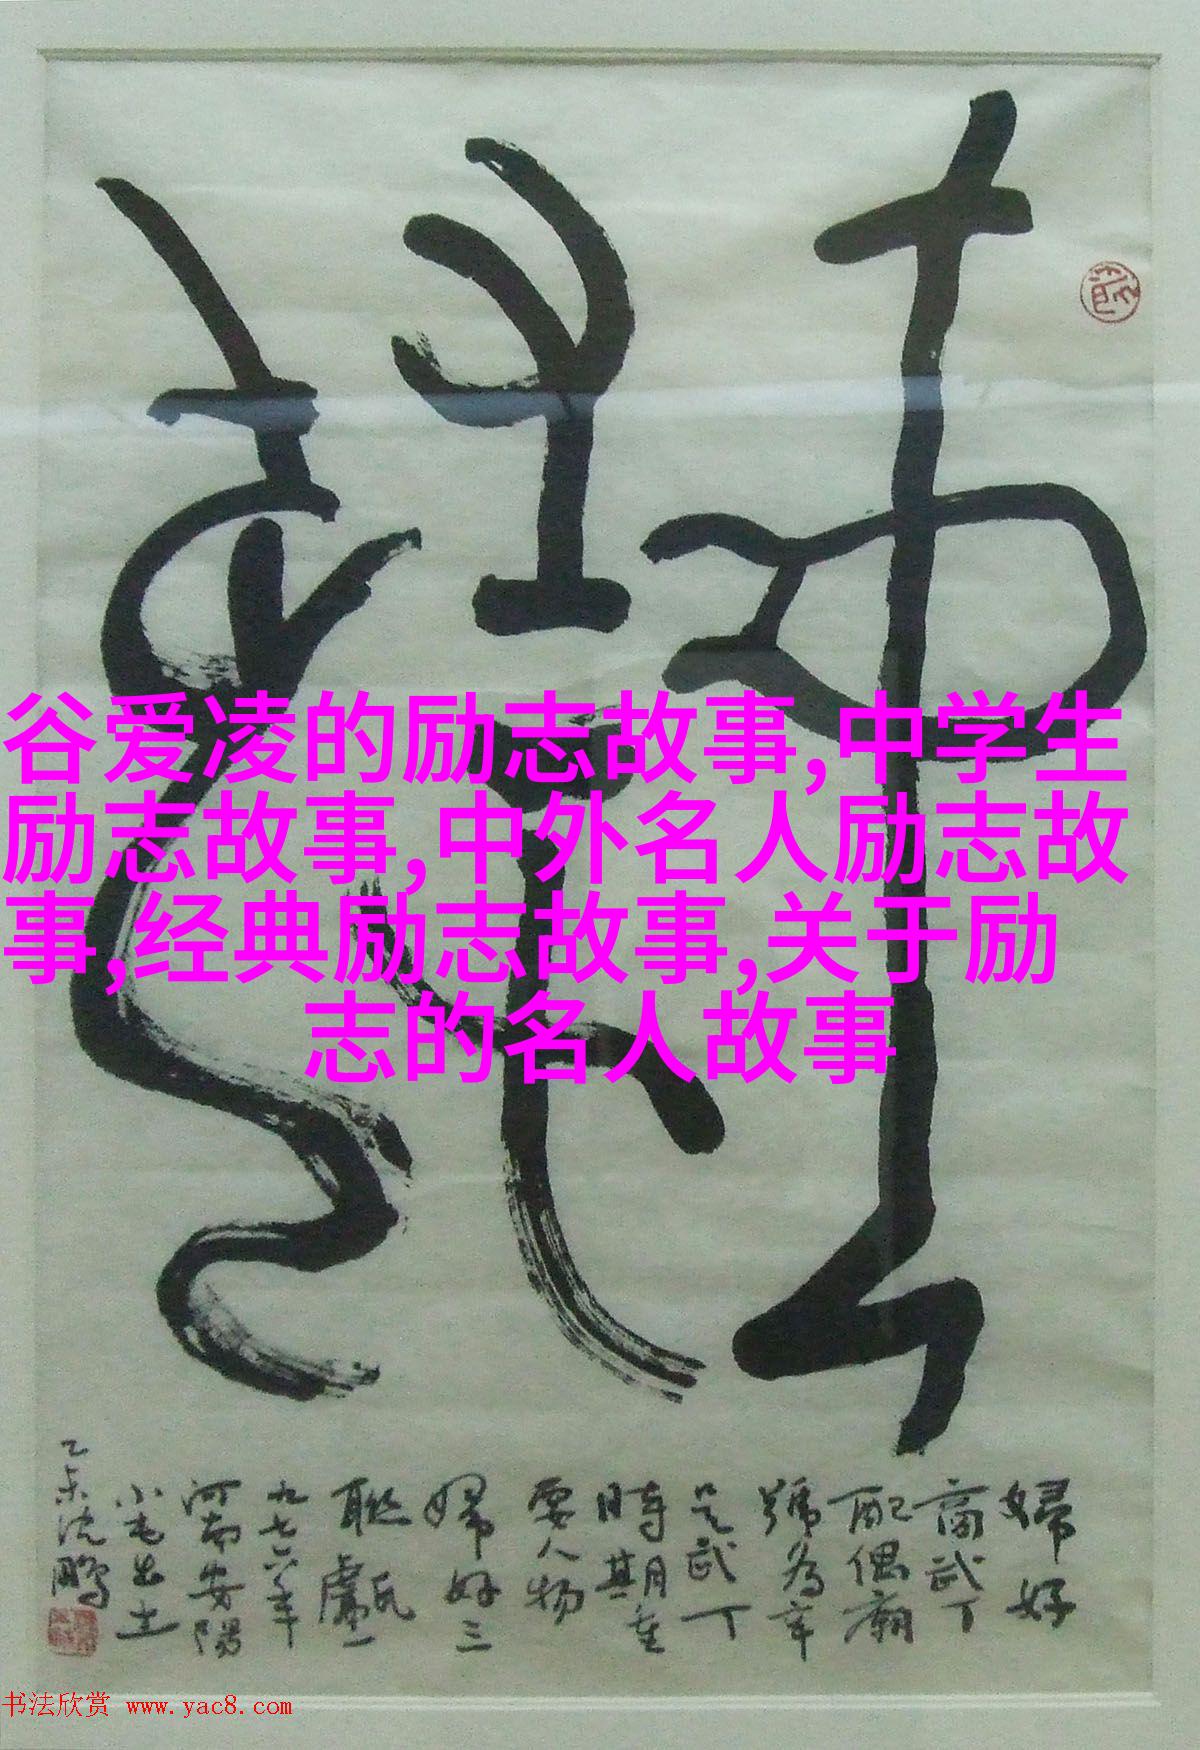 谷爱凌的励志故事,中学生
励志故事,中外名人励志故
事,经典励志故事,关于励
志的名人故事
婦好
商武丁
配偶廟
號為辛
是武丁
時期重
要人物
婦好三
聯甗
九七六年
河南安陽
小屯出土
乙未沈鵬
书法欣赏 www.yac8.com